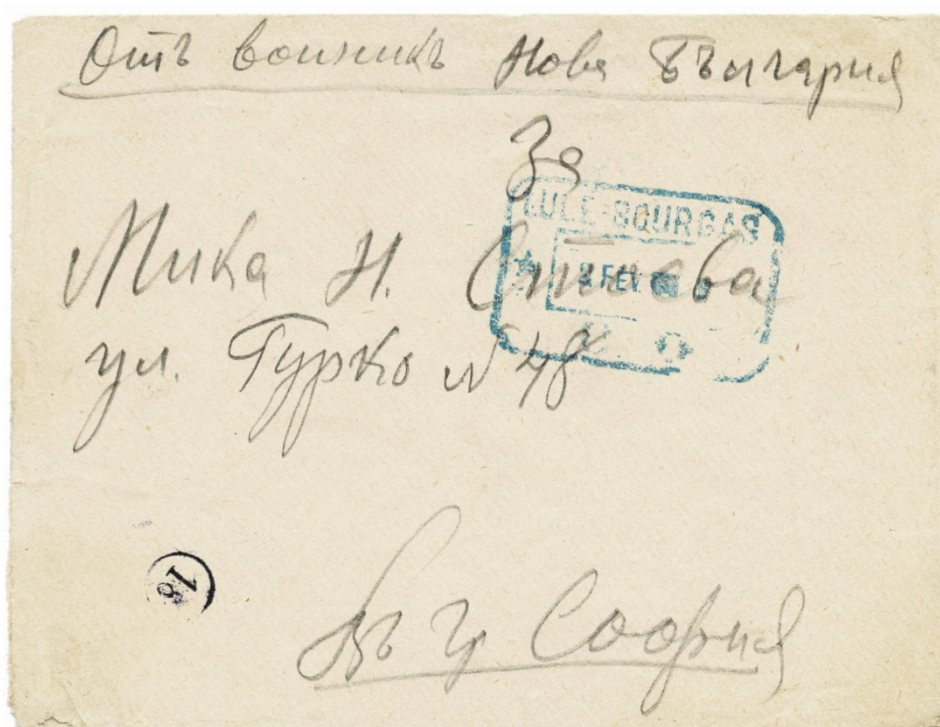 Отъ войникъ Нова България
За
LULE-BOURGAS
Мика Н.
8 FEV
ул. Гурко № 48
18
Въ гр София